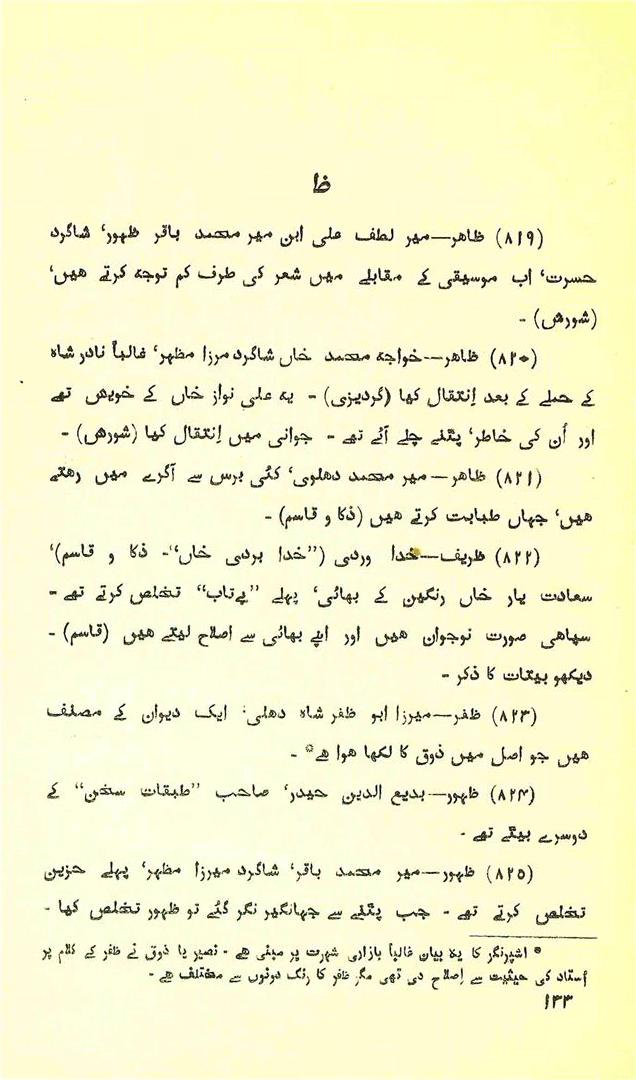 ظ
(۸۱۹) ظاهر—میر لطف علی ابن میر محمد باقر ظهور‘ شاگرد
حسرت‘ اب موسیقی کے مقابلے میں شعر کی طرف کم توجه کرتے هیں‘
(شورش) -
(۸۲۰) ظاهر—خواجه محمد خاں شاگرد مرزا مظهر‘ غالباً نادر شاه
کے حملے کے بعد اِنتقال کیا (گردیزی) - یه علی نواز خاں کے خویش تھے
اور اُن کی خاطر‘ پٹنے چلے آئے تھے - جوانی میں اِنتقال کیا (شورش) -
(۸۲۱) ظاهر—میر محمد دهلوی‘ کئی برس سے آگرے میں رهتے
هیں‘ جہاں طبابت کرتے هیں (ذکا و قاسم) -
(۸۲۲) ظریف—خدا وردی (”خدا بردی خاں“- ذکا و قاسم)‘
سعادت یار خاں رنگین کے بھائی‘ پہلے ”بےتاب“ تخلص کرتے تھے -
سپاهی صورت نوجوان هیں اور اپنے بھائی سے اصلاح لیتے هیں (قاسم) -
دیکھو بیتاب کا ذکر -
(۸۲۳) ظفر—میرزا ابو ظفر شاه دهلی‘ ایک دیوان کے مصنف
هیں جو اصل میں ذوق کا لکھا هوا هے* -
(۸۲۴) ظهور—بدیع الدین حیدر‘ صاحب ”طبقات سخن“ کے
دوسرے بیٹے تھے -
(۸۲۵) ظهور—میر محمد باقر‘ شاگرد میرزا مظهر‘ پہلے حزین
تخلص کرتے تھے - جب پٹنے سے جہانگیر نگر گئے تو ظهور تخلص کیا -
* اشپرنگر کا یه بیان غالباً بازاری شہرت پر مبنی هے - نصیر یا ذوق نے ظفر کے کلام پر
اُستاد کی حیثیت سے اِصلاح دی تھی مگر ظفر کا رنگ دونوں سے مختلف هے -
۱۳۳